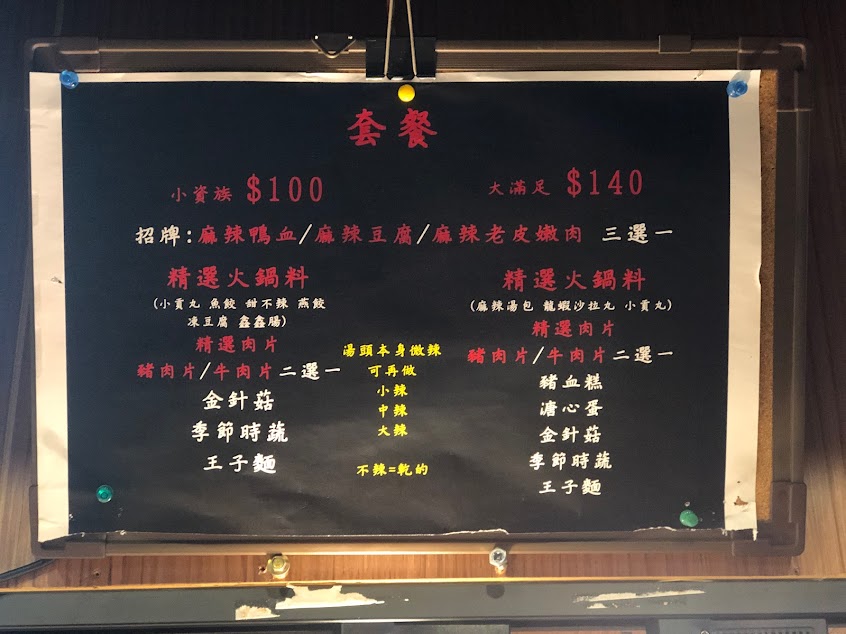 套餐
小資族 $100
大滿足 $140
招牌:麻辣鴨血/麻辣豆腐/麻辣老皮嫩肉 三選一
精選火鍋料
(小貢丸 魚餃 甜不辣 燕餃
凍豆腐 鑫鑫腸)
精選肉片
豬肉片/牛肉片二選一
金針菇
季節時蔬
王子麵
湯頭本身微辣
可再做
小辣
中辣
大辣
不辣=乾的
精選火鍋料
(麻辣湯包 龍蝦沙拉丸 小貢丸)
精選肉片
豬肉片/牛肉片二選一
豬血糕
溏心蛋
金針菇
季節時蔬
王子麵